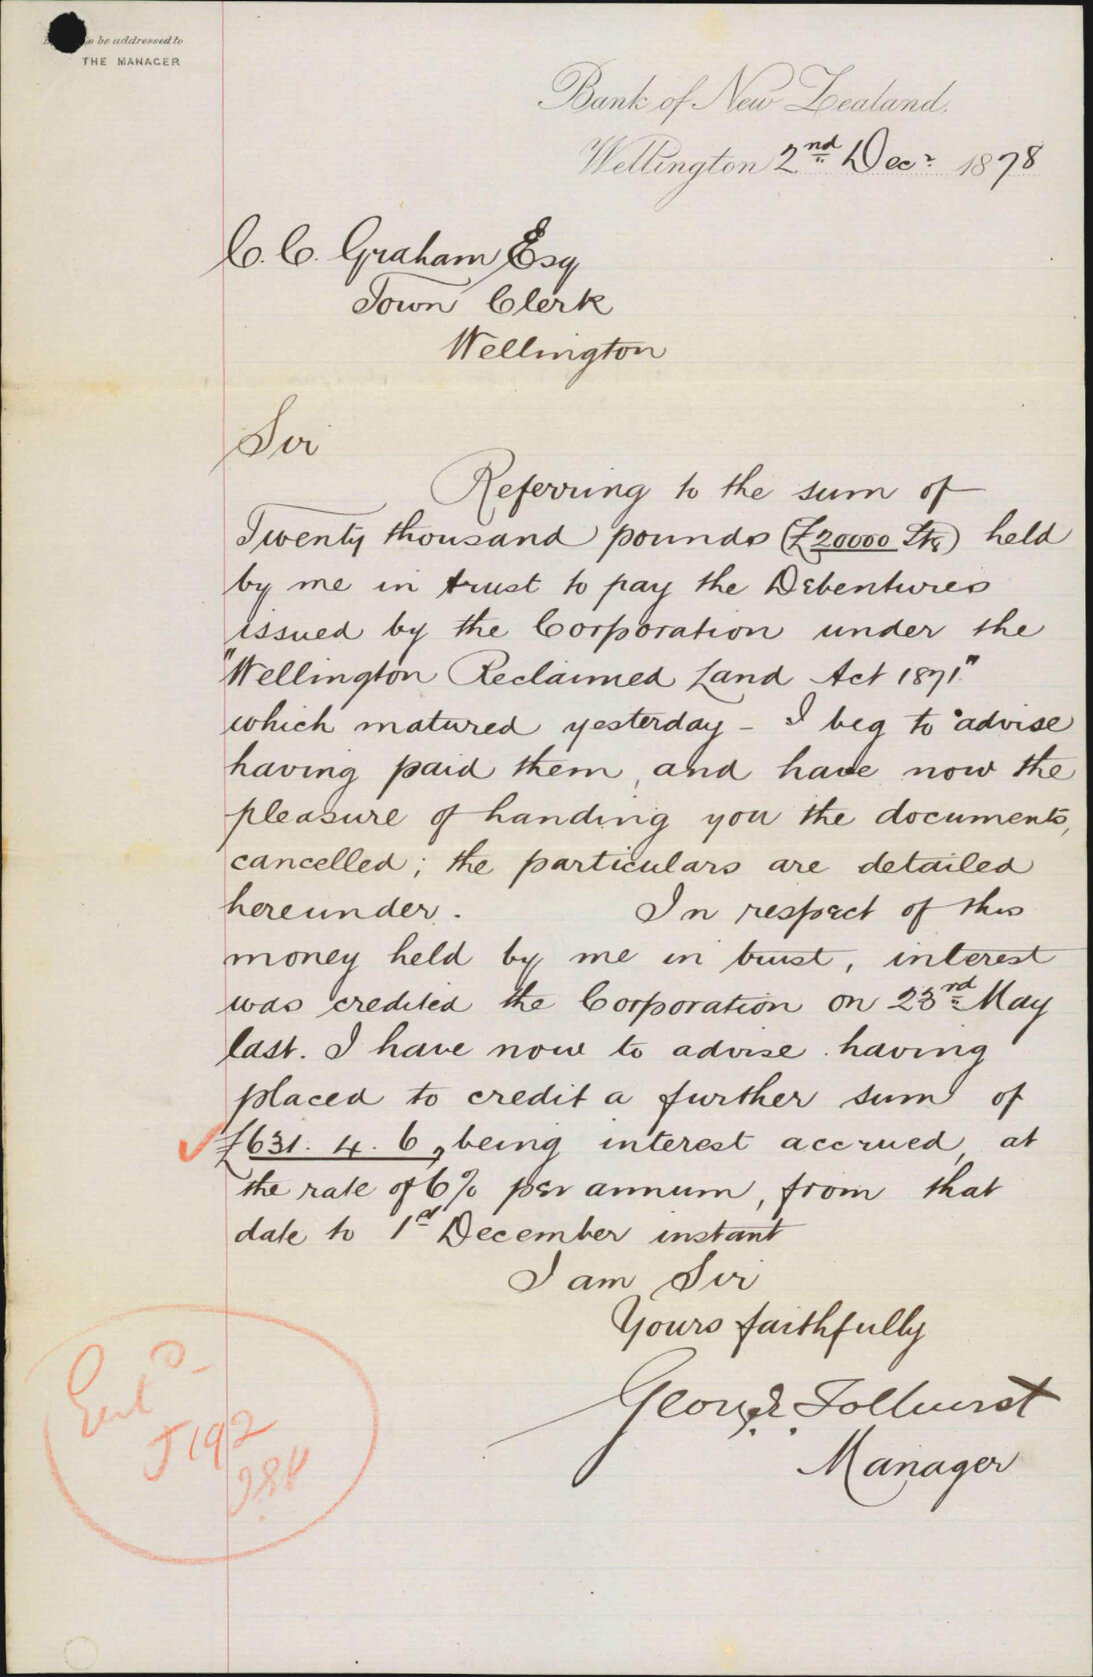 to be addressed to
THE MANAGER
Bank of New Zealand.
Wellington 2nd Decr 1878
C. C. Graham Esq
Town Clerk
Wellington
Sir
Referring to the sum of
Twenty thousand pounds (£20000 Stg) held
by me in trust to pay the Debentures
issued by the Corporation under the
"Wellington Reclaimed Land Act 1871"
which matured yesterday - I beg to advise
having paid them, and have now the
pleasure of handing you the documents,
cancelled; the particulars are detailed
hereunder. In respect of this
money held by me in trust, interest
was credited the Corporation on 23rd May
last. I have now to advise having
placed to credit a further sum of
£631. 4. 6, being interest accrued, at
the rate of 6% per annum, from that
date to 1st December instant
I am Sir
Yours faithfully
George Tolhurst
Manager
J192